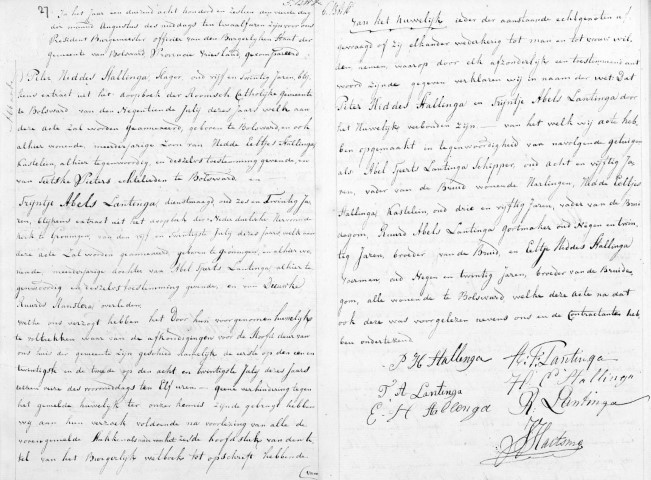 27
In het jaar een duizend acht honderd en zestien den vierden
der maand Augustus des middags ten twaalf uren zijn voor ons
President Burgemeester officier van den Burgerlijken Staat der
gemeente van Bolsward, Provincie Vriesland, gecompareerd
Pieter Heddes Hallenga, Slager, oud vijf en twintig Jaren, blij
kens extract uit het doopboek der Roomsch Catholijke Gemeente
te Bolsward van den Negentiende July dezes jaars welk aan
deze acte zal worden geannexeerd, geboren te Bolsward, en ook
alhier wonende, meerderjarige Zoon van Hedde Eeltjes Hallinga,
Kastelein, alhier tegenwoordig, en deszelvs toestemming gevende, en
van Tietske Pieters te Bolsward en
Trijntje Abels Lantinga, dienstmaagd, oud zes en twintig Ja
ren, blijkens extract uit het doopboek der Nederduitsche Hervormde
kerk te Groningen, van den vijf en twintigste July dezes jaars welk aan
deze acte zal worden geannexeerd, geboren te Groningen, en alhier wo
nende, meerderjarige dochter van Abel Sjoerts Lantinga, alhier te
genwoordig en deszelvs toestemming gevende, en van
Ruurds overleden.
welke ons verzogt hebben het door hun voorgenomen huwelijk
te voltrekken waar van de afkondigingen voor de Hoofd deur van
ons huis der gemeente zijn geschied namelijk de eerste op den een en
twintigste en de tweede op den acht en twintigste July dezes jaars
telken reize des voormiddags ten Elf uren — geene verhindering tegen
het gemelde huwelijk ter onzer kennis zijnde gebragt hebben
wij aan hun verzoek voldoende na voorlezing van alle de
voorengemelde Stukken alsmede van het zesde hoofdstuk van den ti
tel van het Burgerlijk wetboek tot opschrift hebbende
van
van het Huwelijk ieder der aanstaande echtgenoten af
gevraagd of zij elkander wederkerig tot man en tot vrouw wil
den nemen, waarop door elk afzonderlijk een toestemmend ant
woord zijnde gegeven verklaren wij in naam der wet Dat
Pieter Heddes Hallinga en Trijntje Abels Lantinga door
het Huwelijk verbonden zijn — van het welk wij acte heb
ben opgemaakt in tegenwoordigheid van navolgende getuigen
als Abel Sjoerts Lantinga Schipper, oud acht en vijftig Ja
ren, vader van de Bruid wonende Harlingen, Hedde Eeltjes
Hallinga, Kastelein, oud drie en vijftig Jaren, vader van de Brui
degom, Ruurd Abels Lantinga gortmaker oud Negen en twin
tig Jaren, broeder van de Bruid, en Eeltje Heddes Hallenga
Voerman, oud Negen en twintig Jaren, broeder van de Bruide
gom, alle wonende te Bolsward welke deze acte na dat
ook deze was voorgelezen nevens ons en de Contractanten heb
ben ondertekend.
P H Hallenga
A. S. Lantinga
T A Lantinga
H. E. Hallinga
E. H Hallenga
R. Lantinga